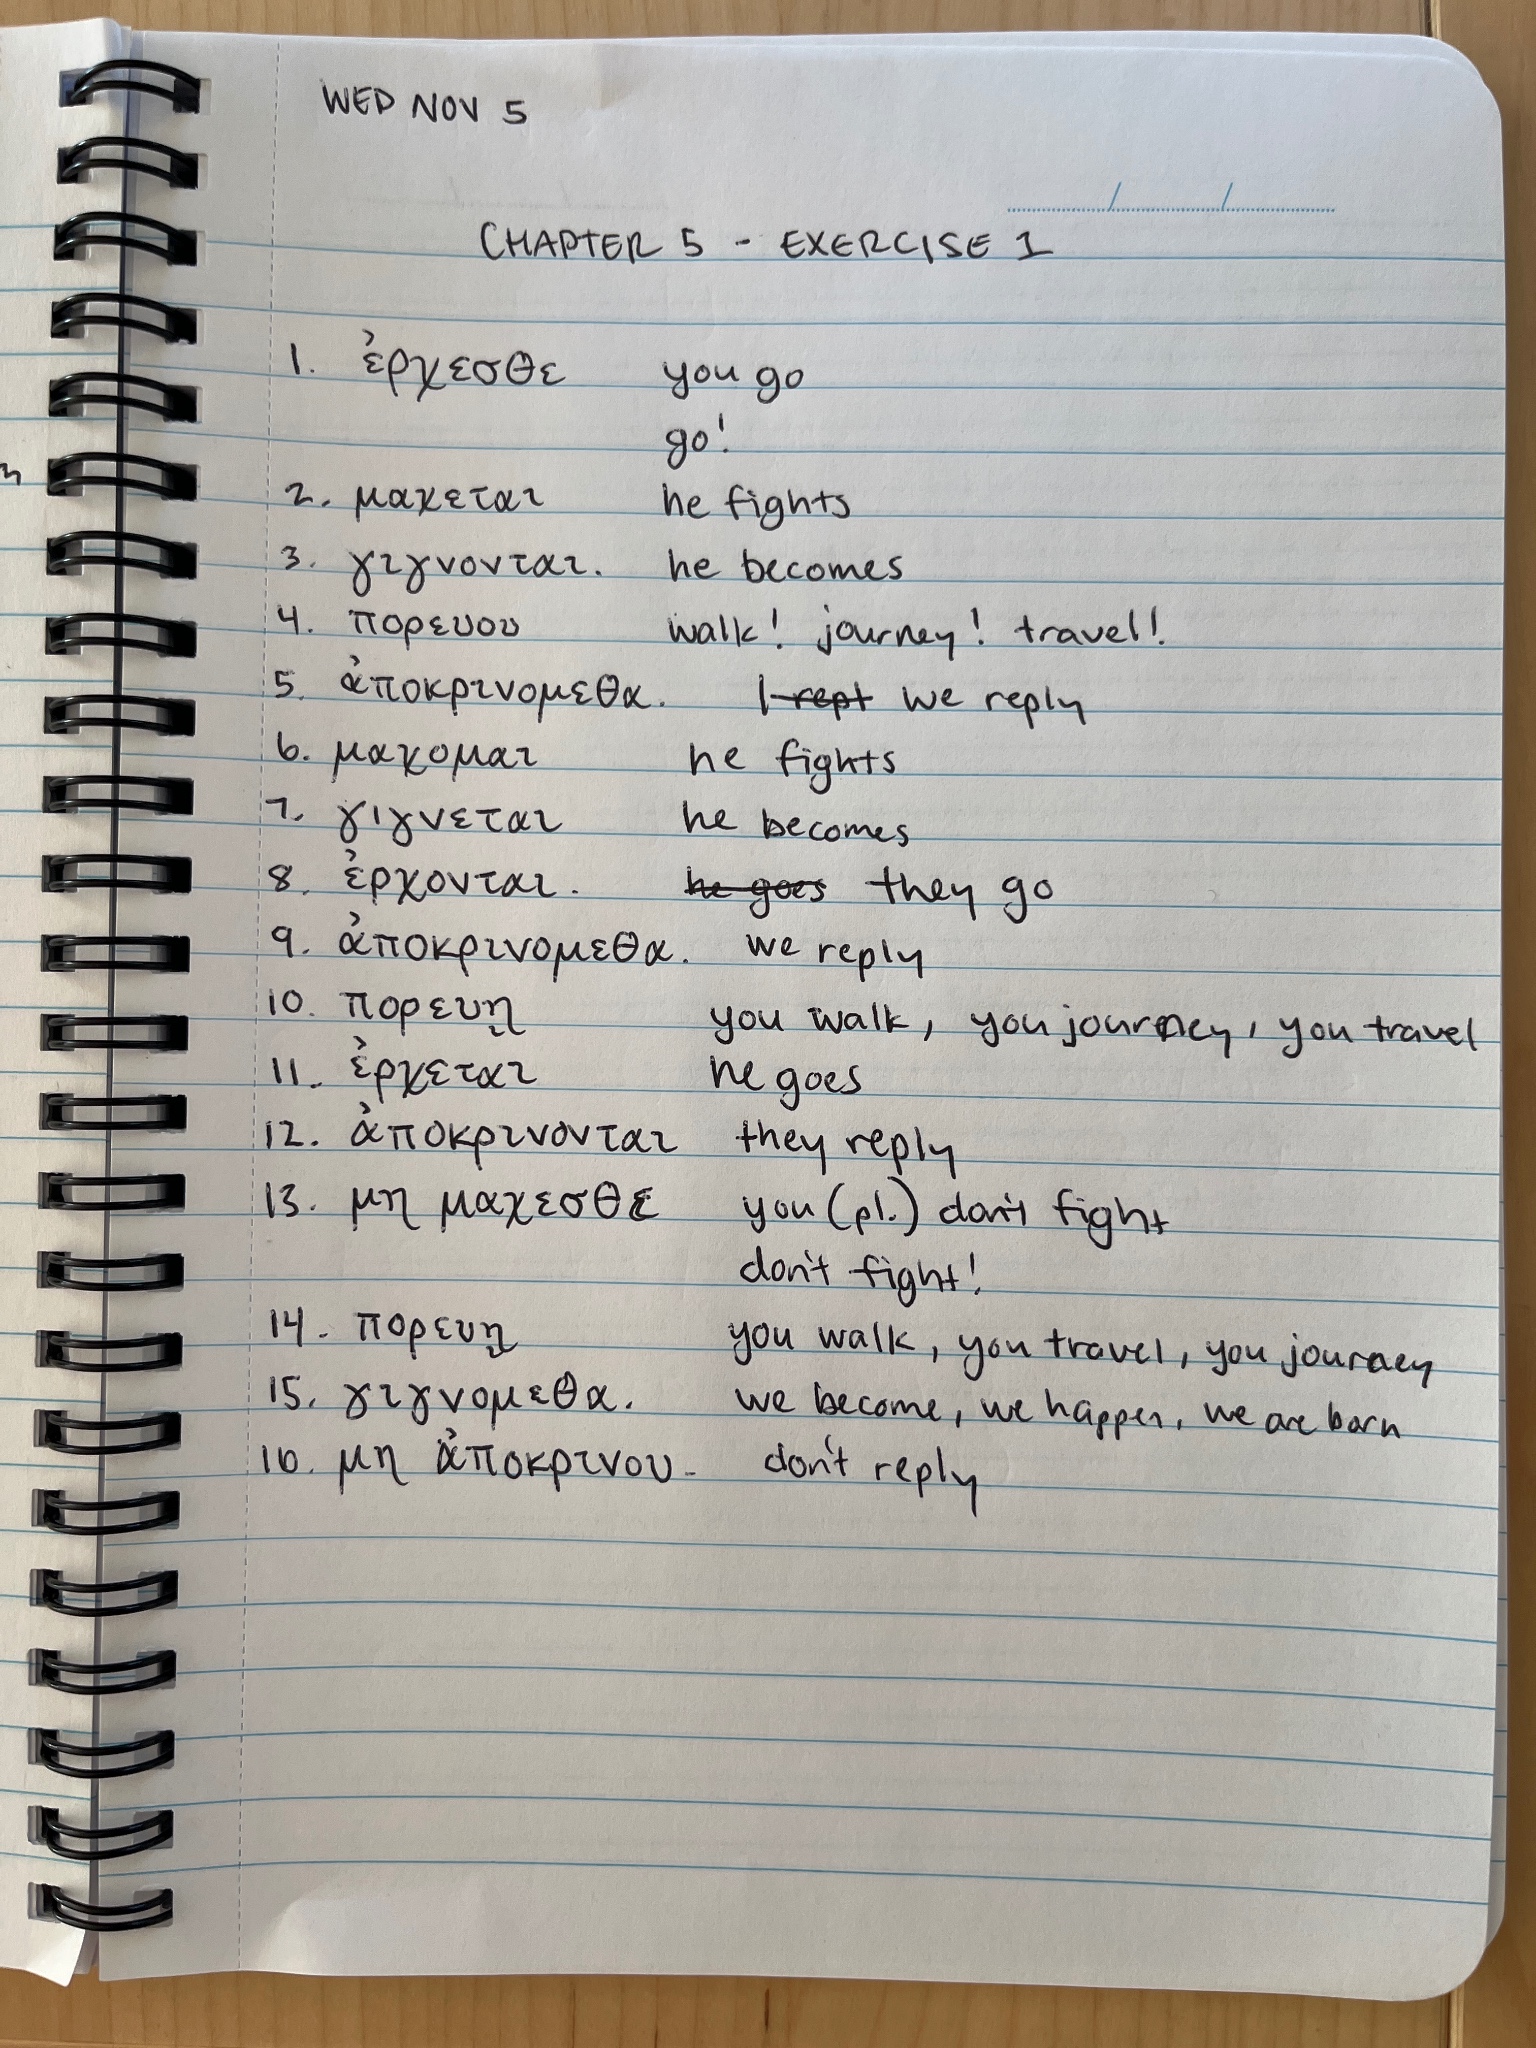 WED NOV 5
CHAPTER 5 - EXERCISE 1
1. ἐρχεσθε you go
go!
2. μαχεται he fights
3. γιγνονται. he becomes
4. πορευου walk! journey! travel!
5. ἀποκρινομεθα. I rept we reply
6. μαχομαι he fights
7. γιγνεται he becomes
8. ἐρχονται. he goes they go
9. ἀποκρινομεθα. we reply
10. πορευῃ you walk, you journey, you travel
11. ἐρχεται he goes
12. ἀποκρινονται they reply
13. μη μαχεσθε you (pl.) don't fight
don't fight!
14. πορευῃ you walk, you travel, you journey
15. γιγνομεθα. we become, we happen, we are born
16. μη ἀποκρινου. don't reply